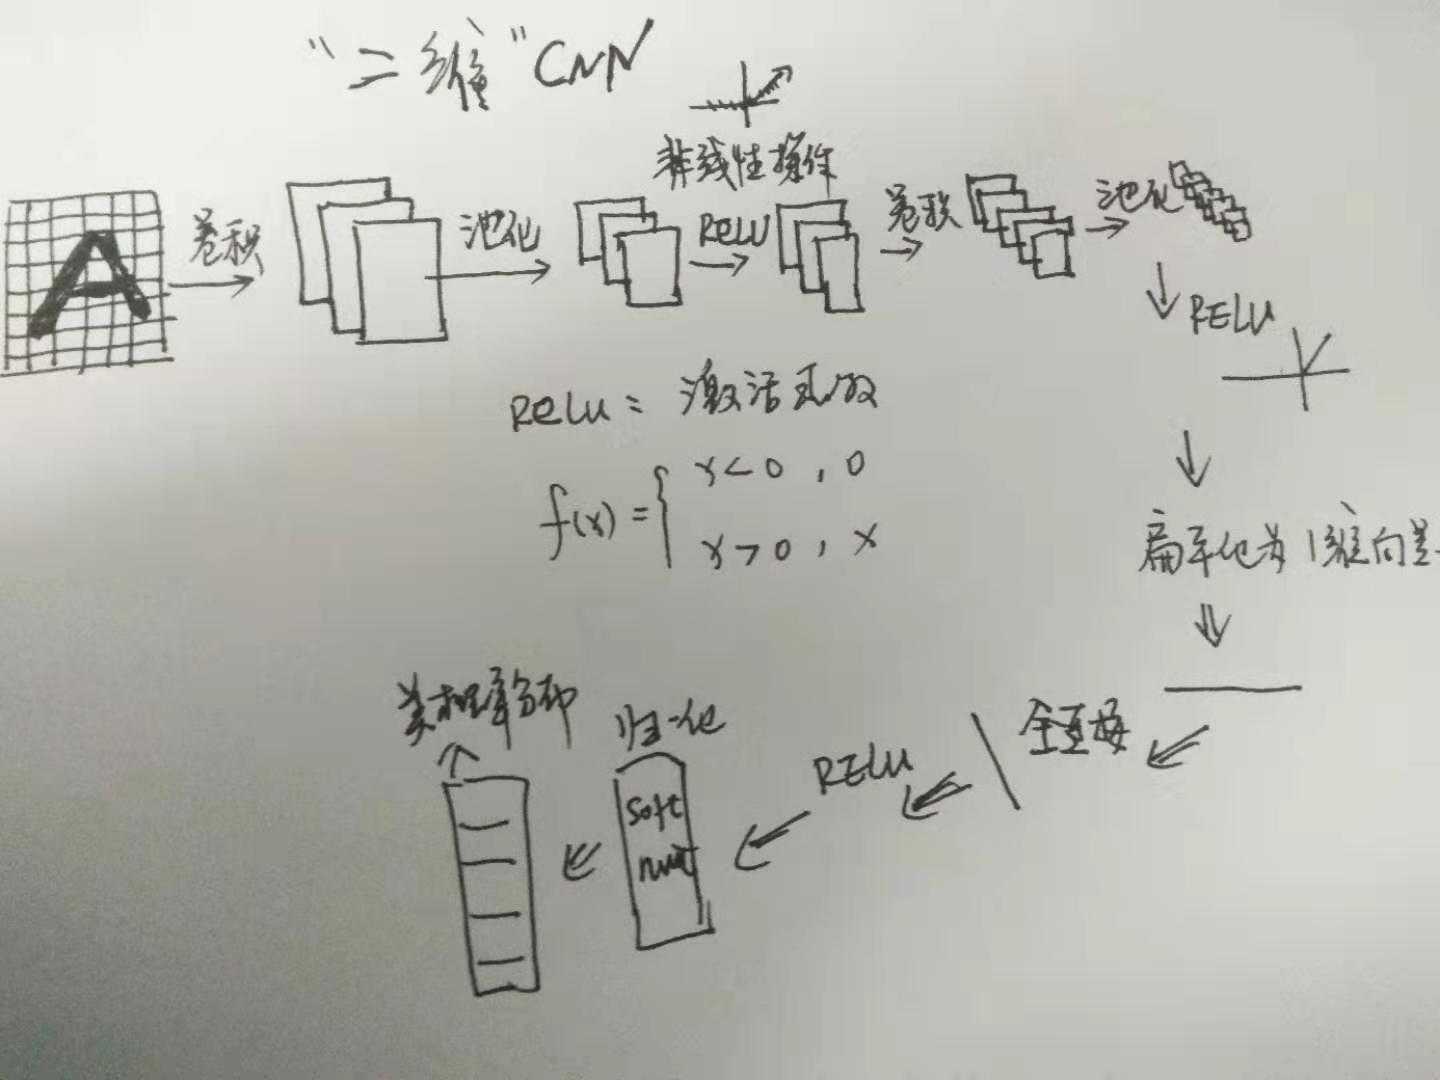 "二维"CNN
A
卷积
池化
非线性操作
ReLU
卷积
池化
RELU
ReLU: 激活函数
f(x) = { x<0, 0
x>0, x
扁平化为1维向量
全连接
RELU
归一化
softmax
类概率分布